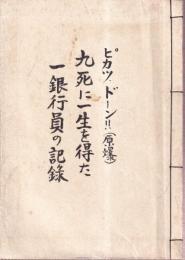 ピカッ、ドーン!!(原爆)
九死に一生を得た
一銀行員の記録